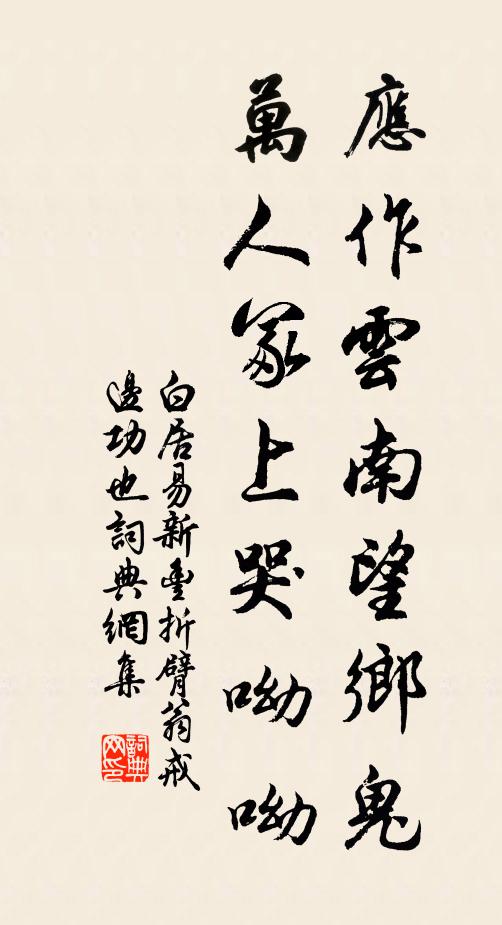 應作雲南望鄉鬼
萬人冢上哭呦呦
白居易新豐折臂翁戒
邊功也詞典網集
詞典網印